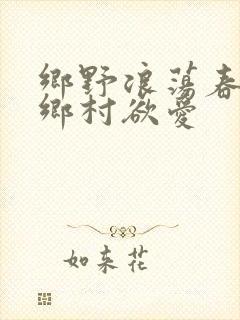 鄉野浪蕩春
鄉村欲愛
如来花